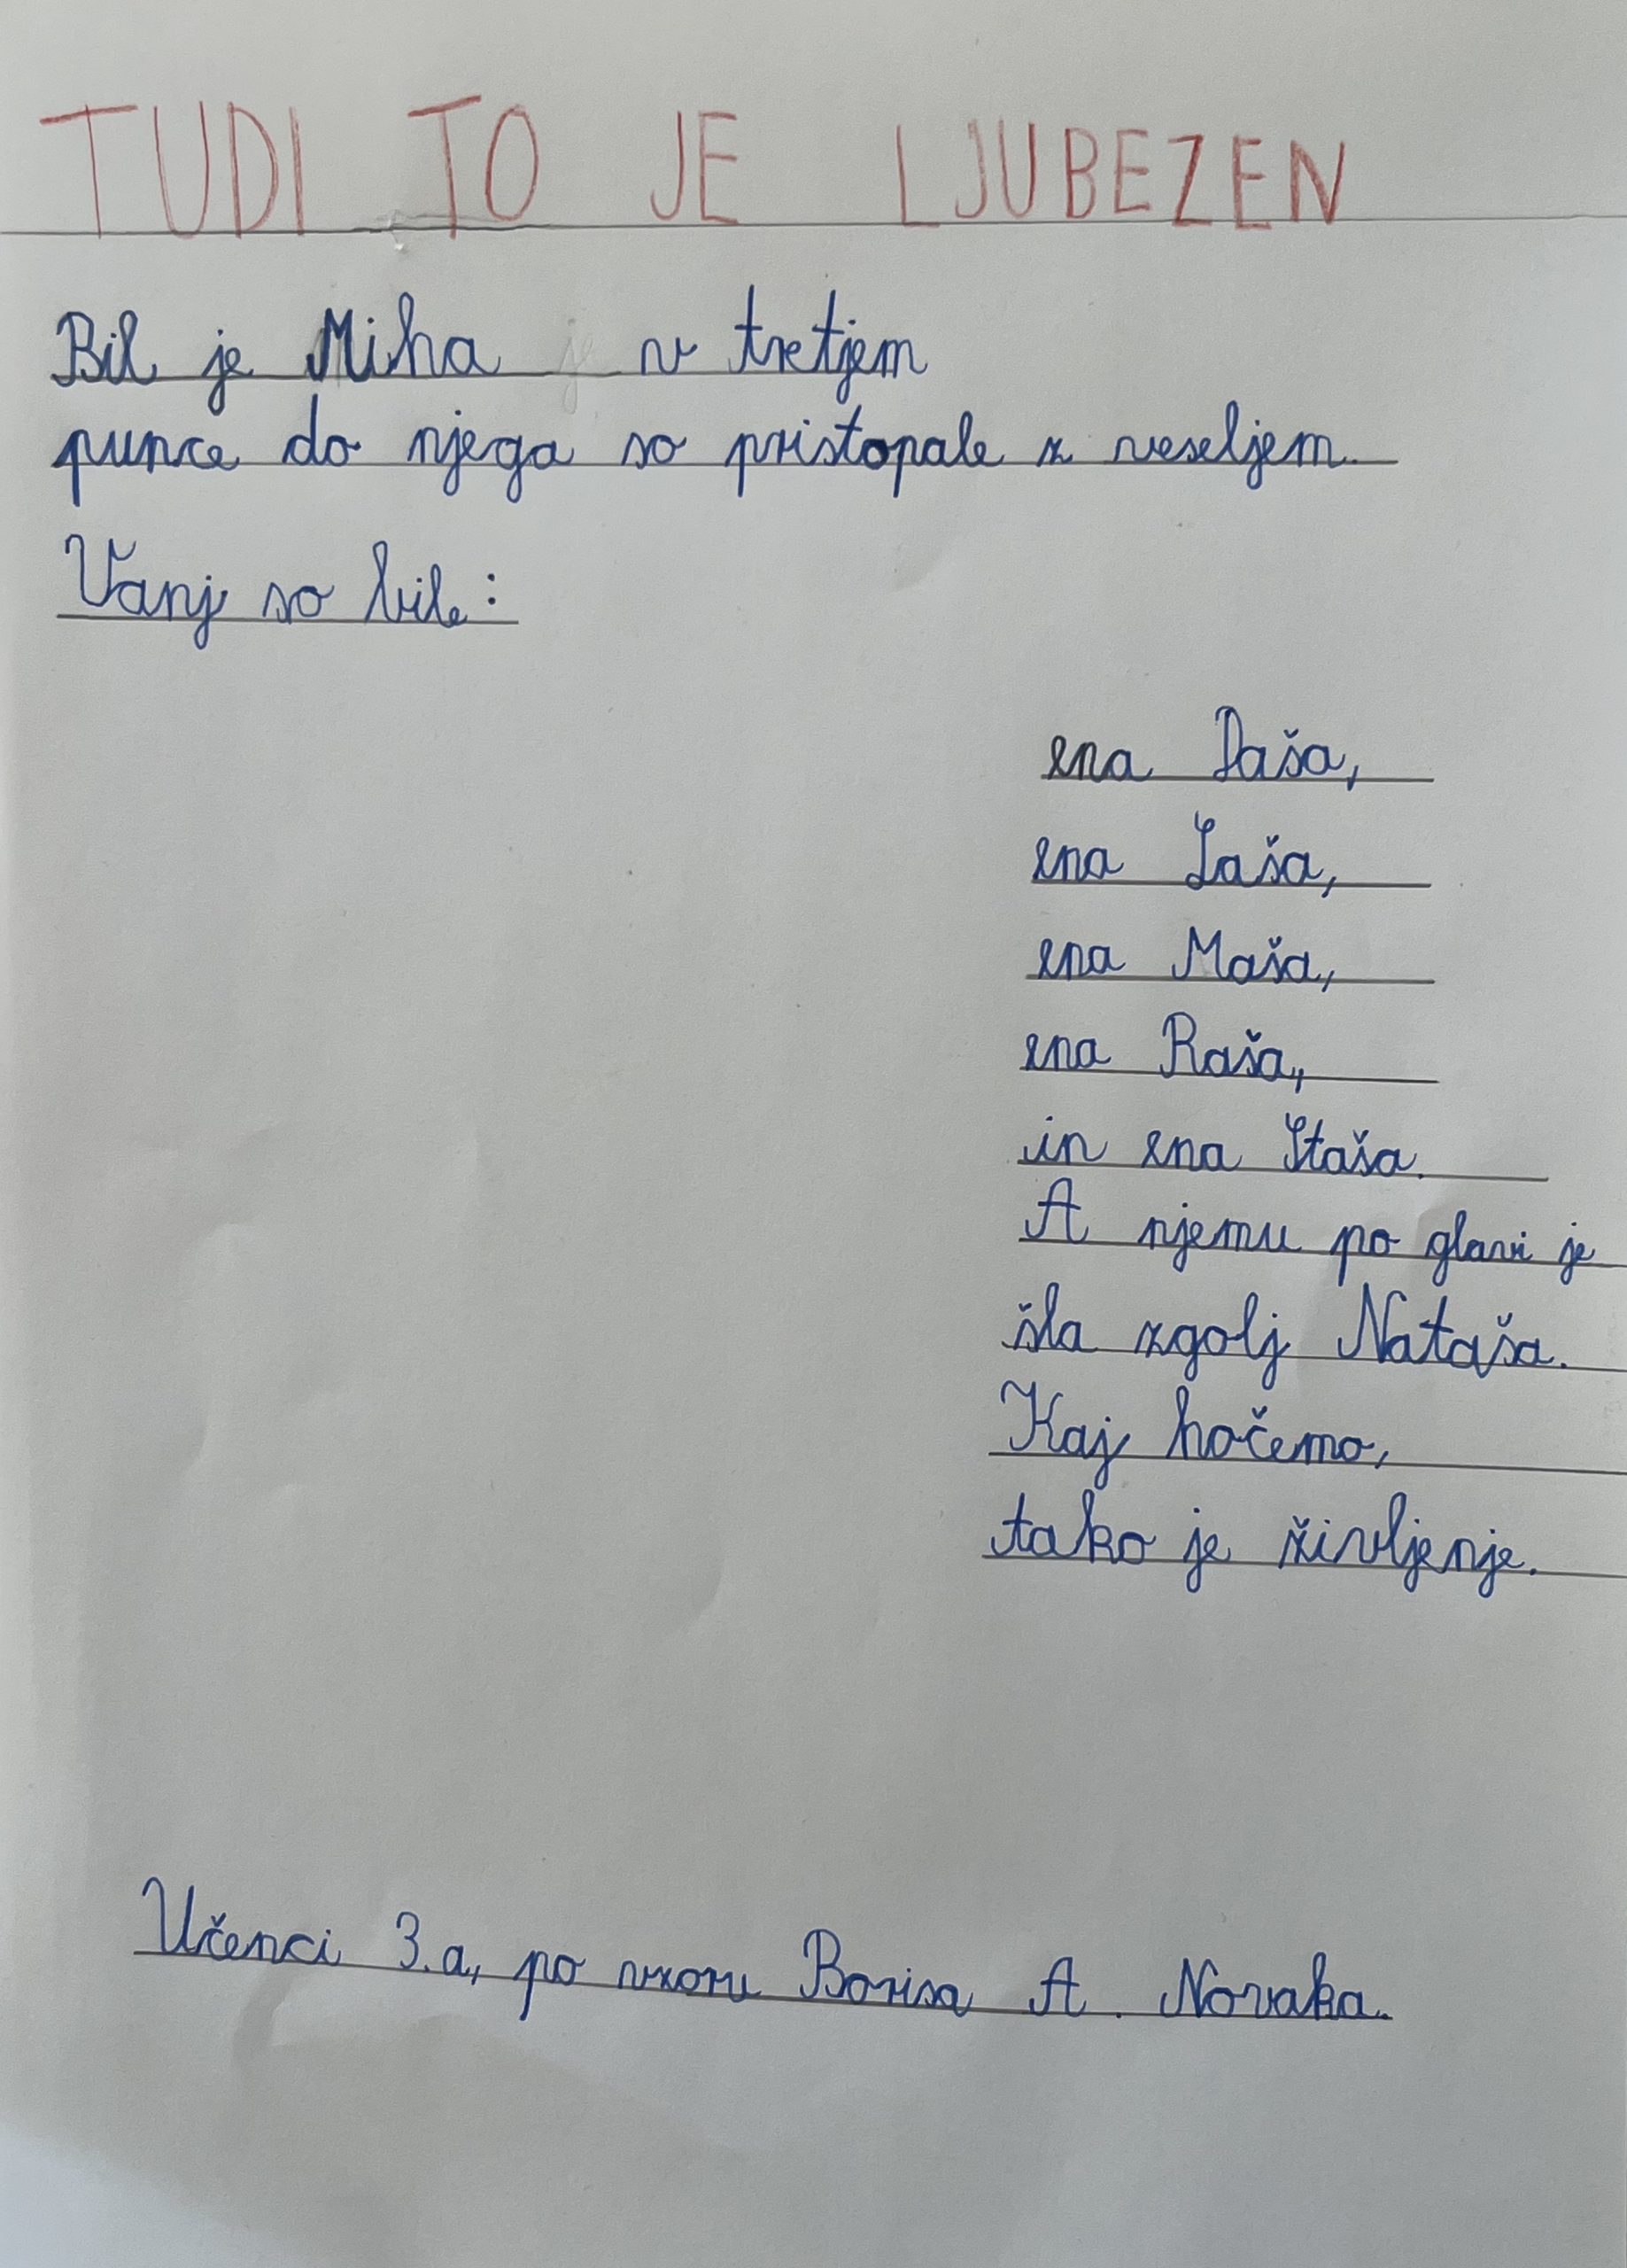 TUDI TO JE LJUBEZEN
Bil je Miha v tretjem
punce do njega so pristopale z veseljem.
Vanj so bile:
ena Daša,
ena Saša,
ena Maša,
ena Raša,
in ena Staša.
A njemu po glavi je
šla zgolj Nataša.
Kaj hočemo,
tako je življenje.
Učenci 3.a, po vzoru Borisa A. Novaka.